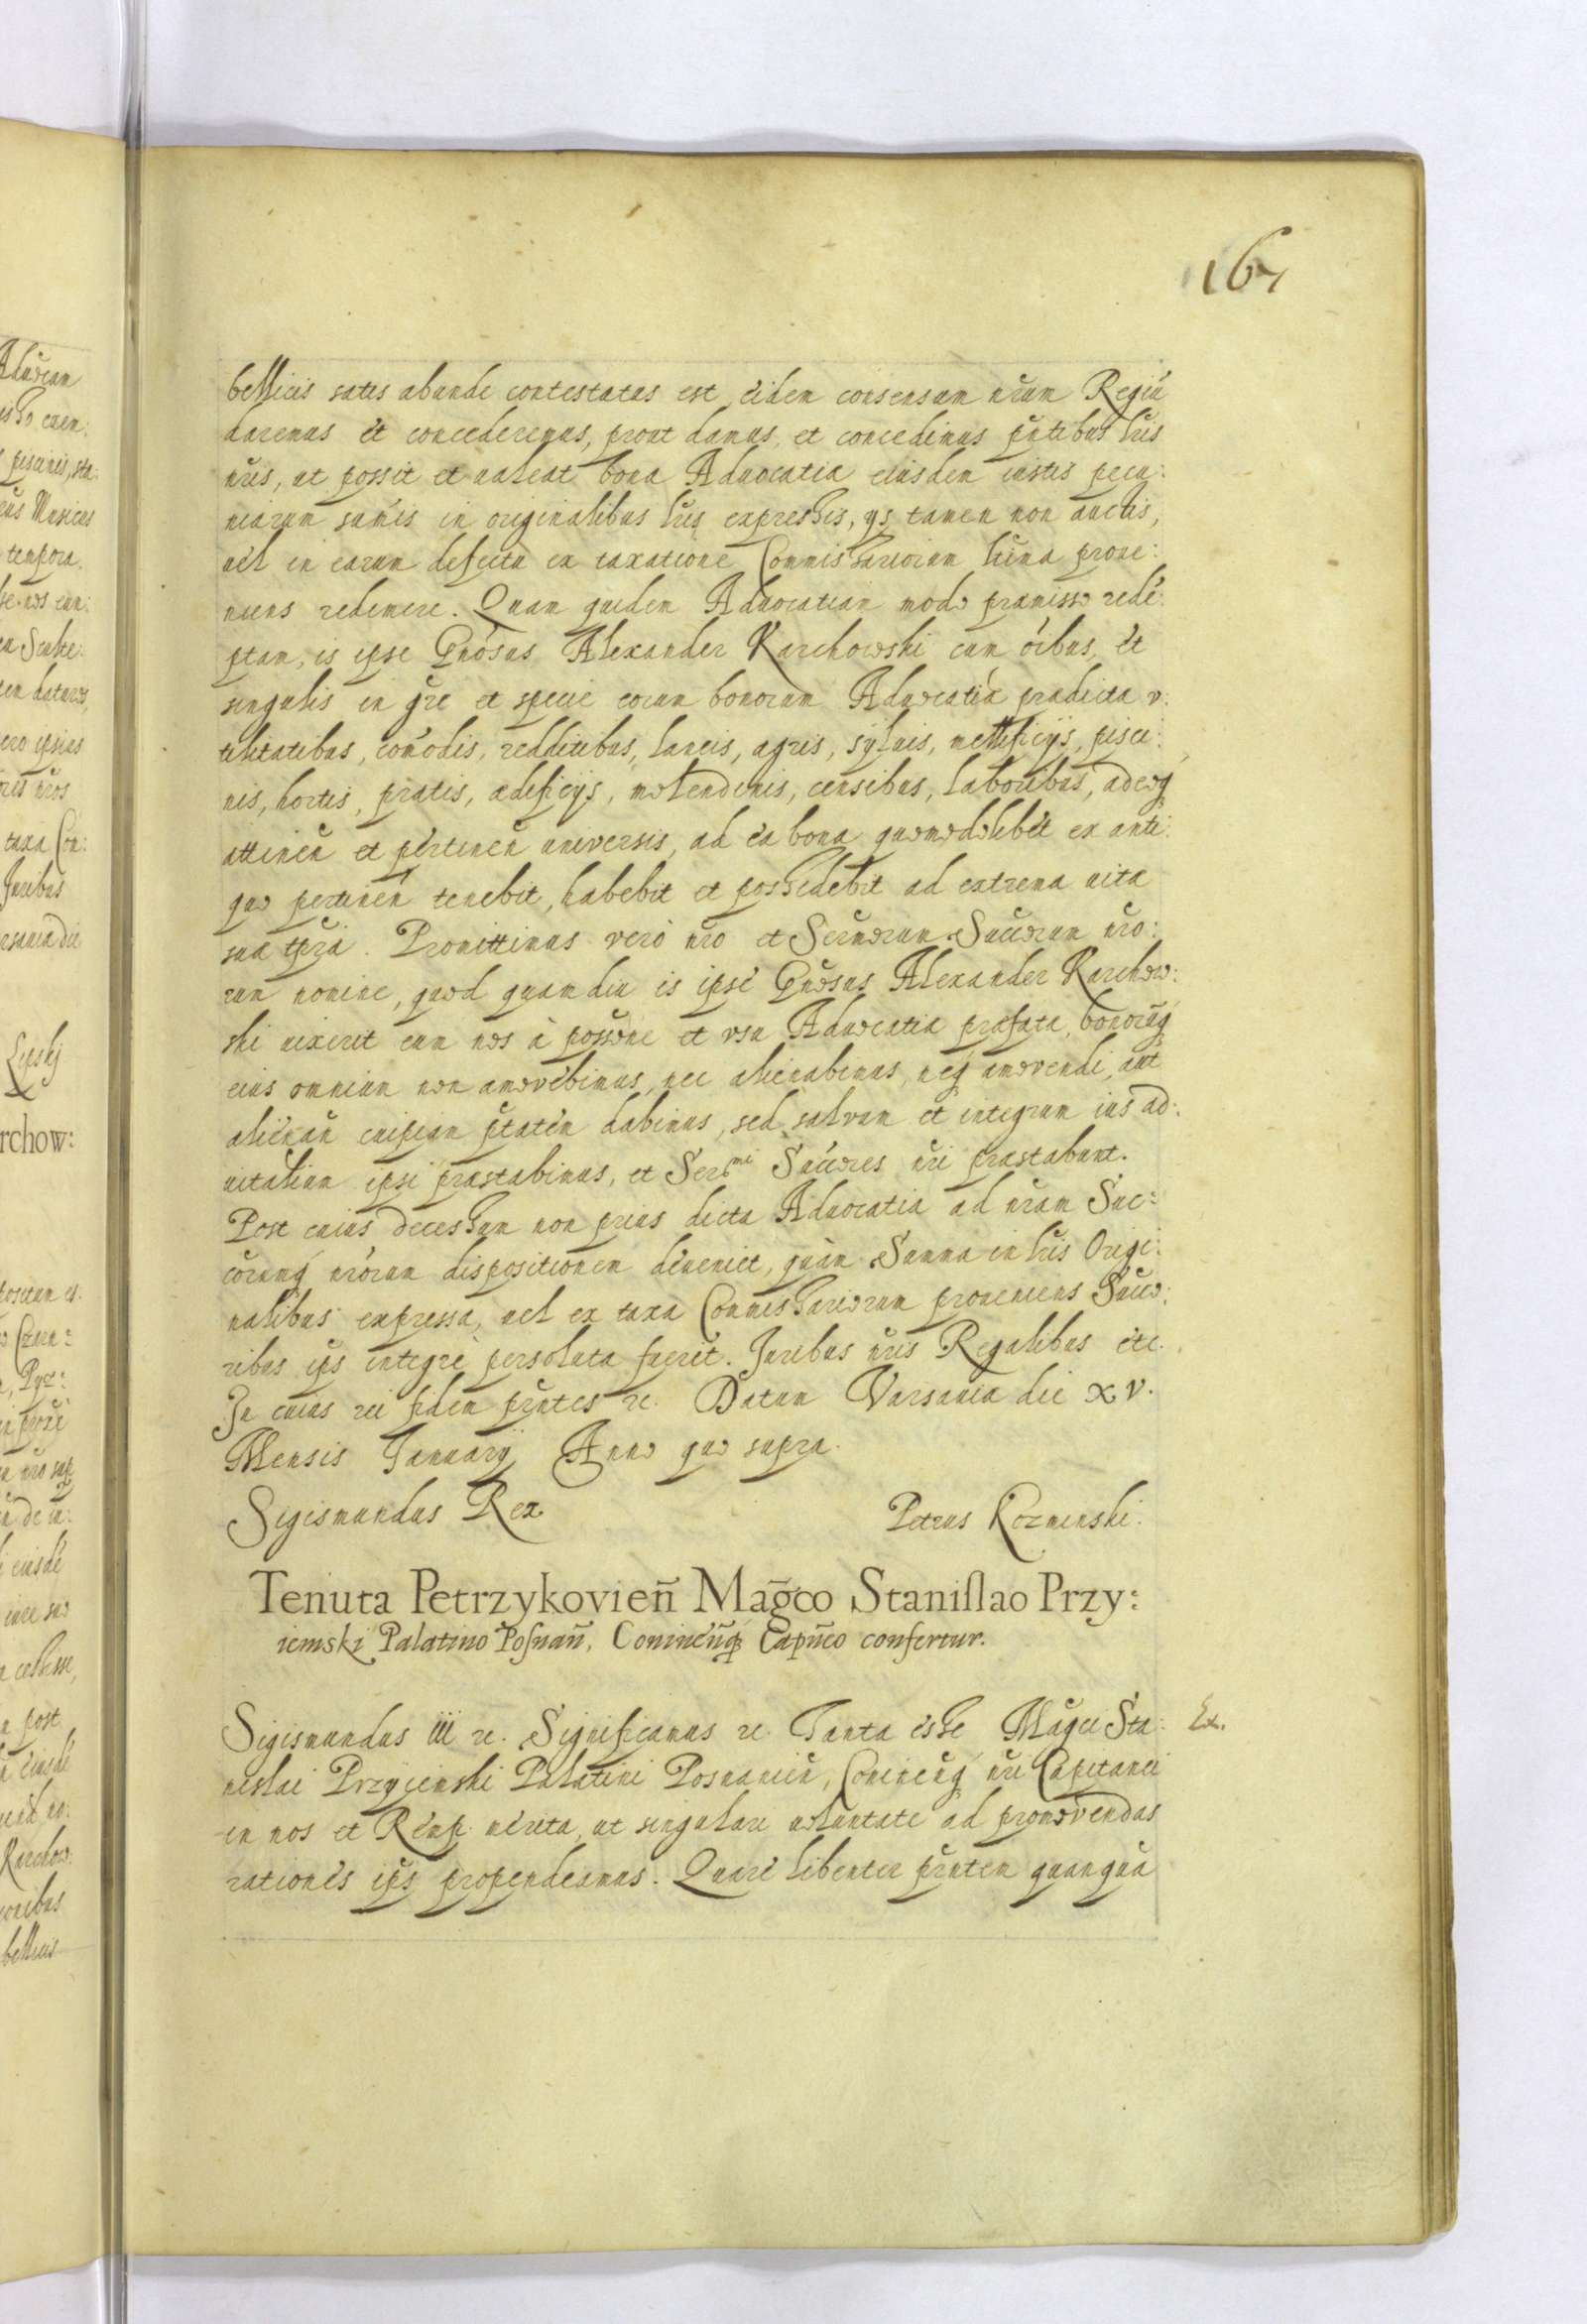 167
bellicis satis abunde contestatus est, eidem consensum nr̃um Regiũ
daremus et concederemus, prout damus, et concedimus pñtibus lr̃is
nr̃is, ut possit et ualeat bona Aduocatiæ eiusdem iustis pecu:
niarum sum̃is in originalibus lr̃is expressis, ijs tamen non auctis,
uel in earum defectu ex taxatione Commissariorum nr̃orum proue:
niens redimere. Quam quidem Aduocatiam modo præmisso redẽ:
ptam, is ipse Gñosus Alexander Karchowski cum om̃ibus, et
singulis in gñre et specie eorum bonorum Aduocatiæ prædictæ v:
tilitatibus, com̃odis, redditibus, laneis, agris, syluis, mellificijs, pisci:
nis, hortis, pratis, ædificijs, molendinis, censibus, laboribus, adeoq
attineñ et pertineñ universis, ad ea bona quomodolibet ex anti:
quo pertineñ tenebit, habebit et possidebit ad extrema uitæ
suæ tp̃ra. Promittimus vero nr̃o et Sermorum Succr̃um nr̃o:
rum nomine, quod quamdiu is ipse Gñosus Alexander Karchow:
ski uixerit eum nos à poss̃one et vsu Aduocatiæ præfatæ, bonorũq
eius omnium non amovebimus, nec alienabimus, neq amovendi, aut
alienañ cuipiam p̃tatem dabimus, sed salvum et integrum ius ad:
uitalium ipsi præstabimus, et Sermi Succr̃es nr̃i præstabunt.
Post cuius decessum non prius dicta Aduocatia ad nr̃am Suc:
cr̃orumq nr̃orum dispositionem deueniet, quàm Summa in lr̃is Origi:
nalibus expressa, uel ex taxa Commissariorum proueniens Succo:
ribus ip̃s integre persoluta fuerit. Juribus nr̃is Regalibus etc.
In cuius rei fidem pr̃ntes &c. Datum Varsauiæ die XV.
Mensis Januarij Anno quo supra.
Sigismundus Rex
Petrus Kozminski.
Tenuta Petrzykovieñ Mag̃co Stanislao Przy:
iemski Palatino Posnañ, Conineñq Capñeo confertur.
Sigismundus III &c. Significamus &c. Tanta esse Mag̃ci Sta: Ex.
nislai Przyiemski Palatini Posnanieñ, Conineñq nr̃i Capitanei
in nos et Remp. merita, ut singulari uoluntate ad promovendas
rationes ip̃s propendeamus. Quare libenter pr̃ntem quanquã